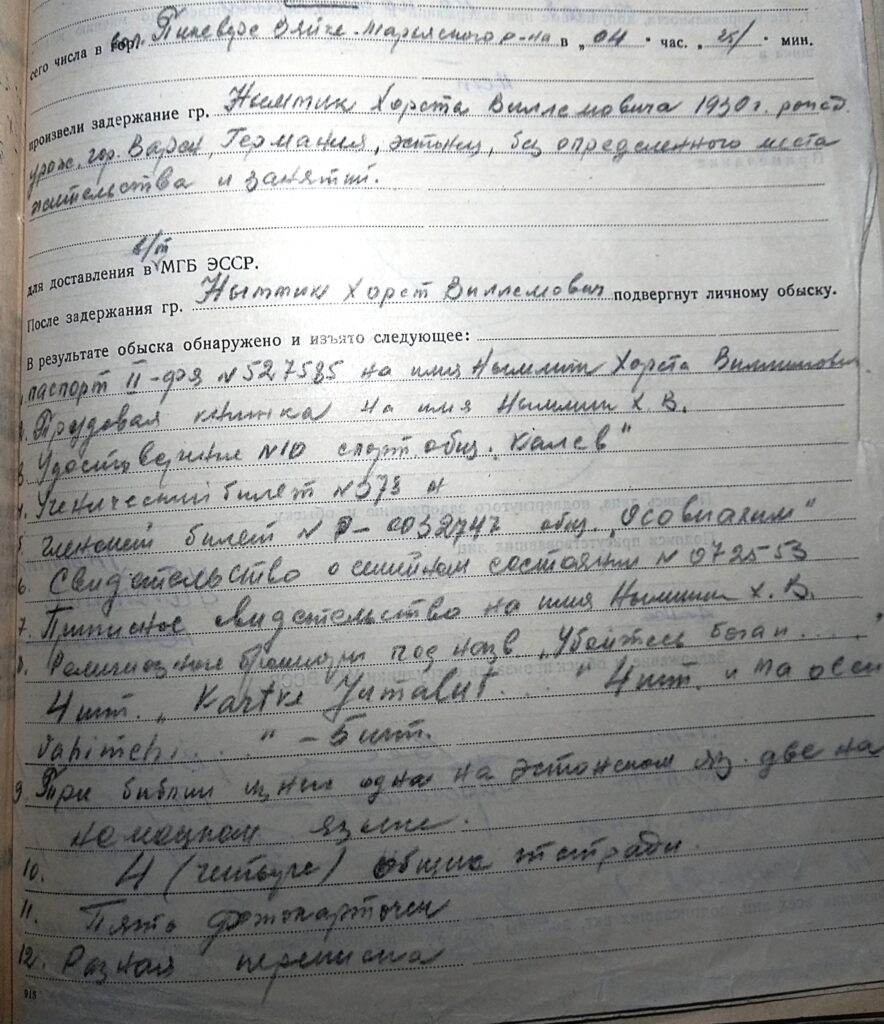 сего числа в вол. Пикевере Вяйке-Марьяского р-на в „04" час. „25" мин.
произвели задержание гр. Ныммик Хорста Виллемовича 1930 г. рожд.
урож. гор. Варен, Германия, эстонец, без определенного места
жительства и занятий.
в/т
для доставления в МГБ ЭССР.
После задержания гр. Ныммик Хорст Виллемович подвергнут личному обыску.
В результате обыска обнаружено и изъято следующее:
1. паспорт II-ФЯ № 527585 на имя Ныммик Хорста
2. Трудовая книжка на имя Ныммик Х. В.
3. Удостоверение № 10 спорт. общ. „Калев"
4. Ученический билет № 373 и
5. членский билет № общ. „Осовиахим"
6. Свидетельство о семейном состоянии № 072553
7. Приписное свидетельство на имя Ныммик Х. В.
8. Религиозные брошюры под назв. „Убойтесь бога и....."
4 шт. „Kartke Jumalat...." 4 шт. и Ma olen
....." – 5 шт.
9. Три библии из них одна на эстонском яз. две на
немецком языке.
10. 4 (четыре) общие тетради.
11. Пять фотокарточек
12. Разная переписка
918